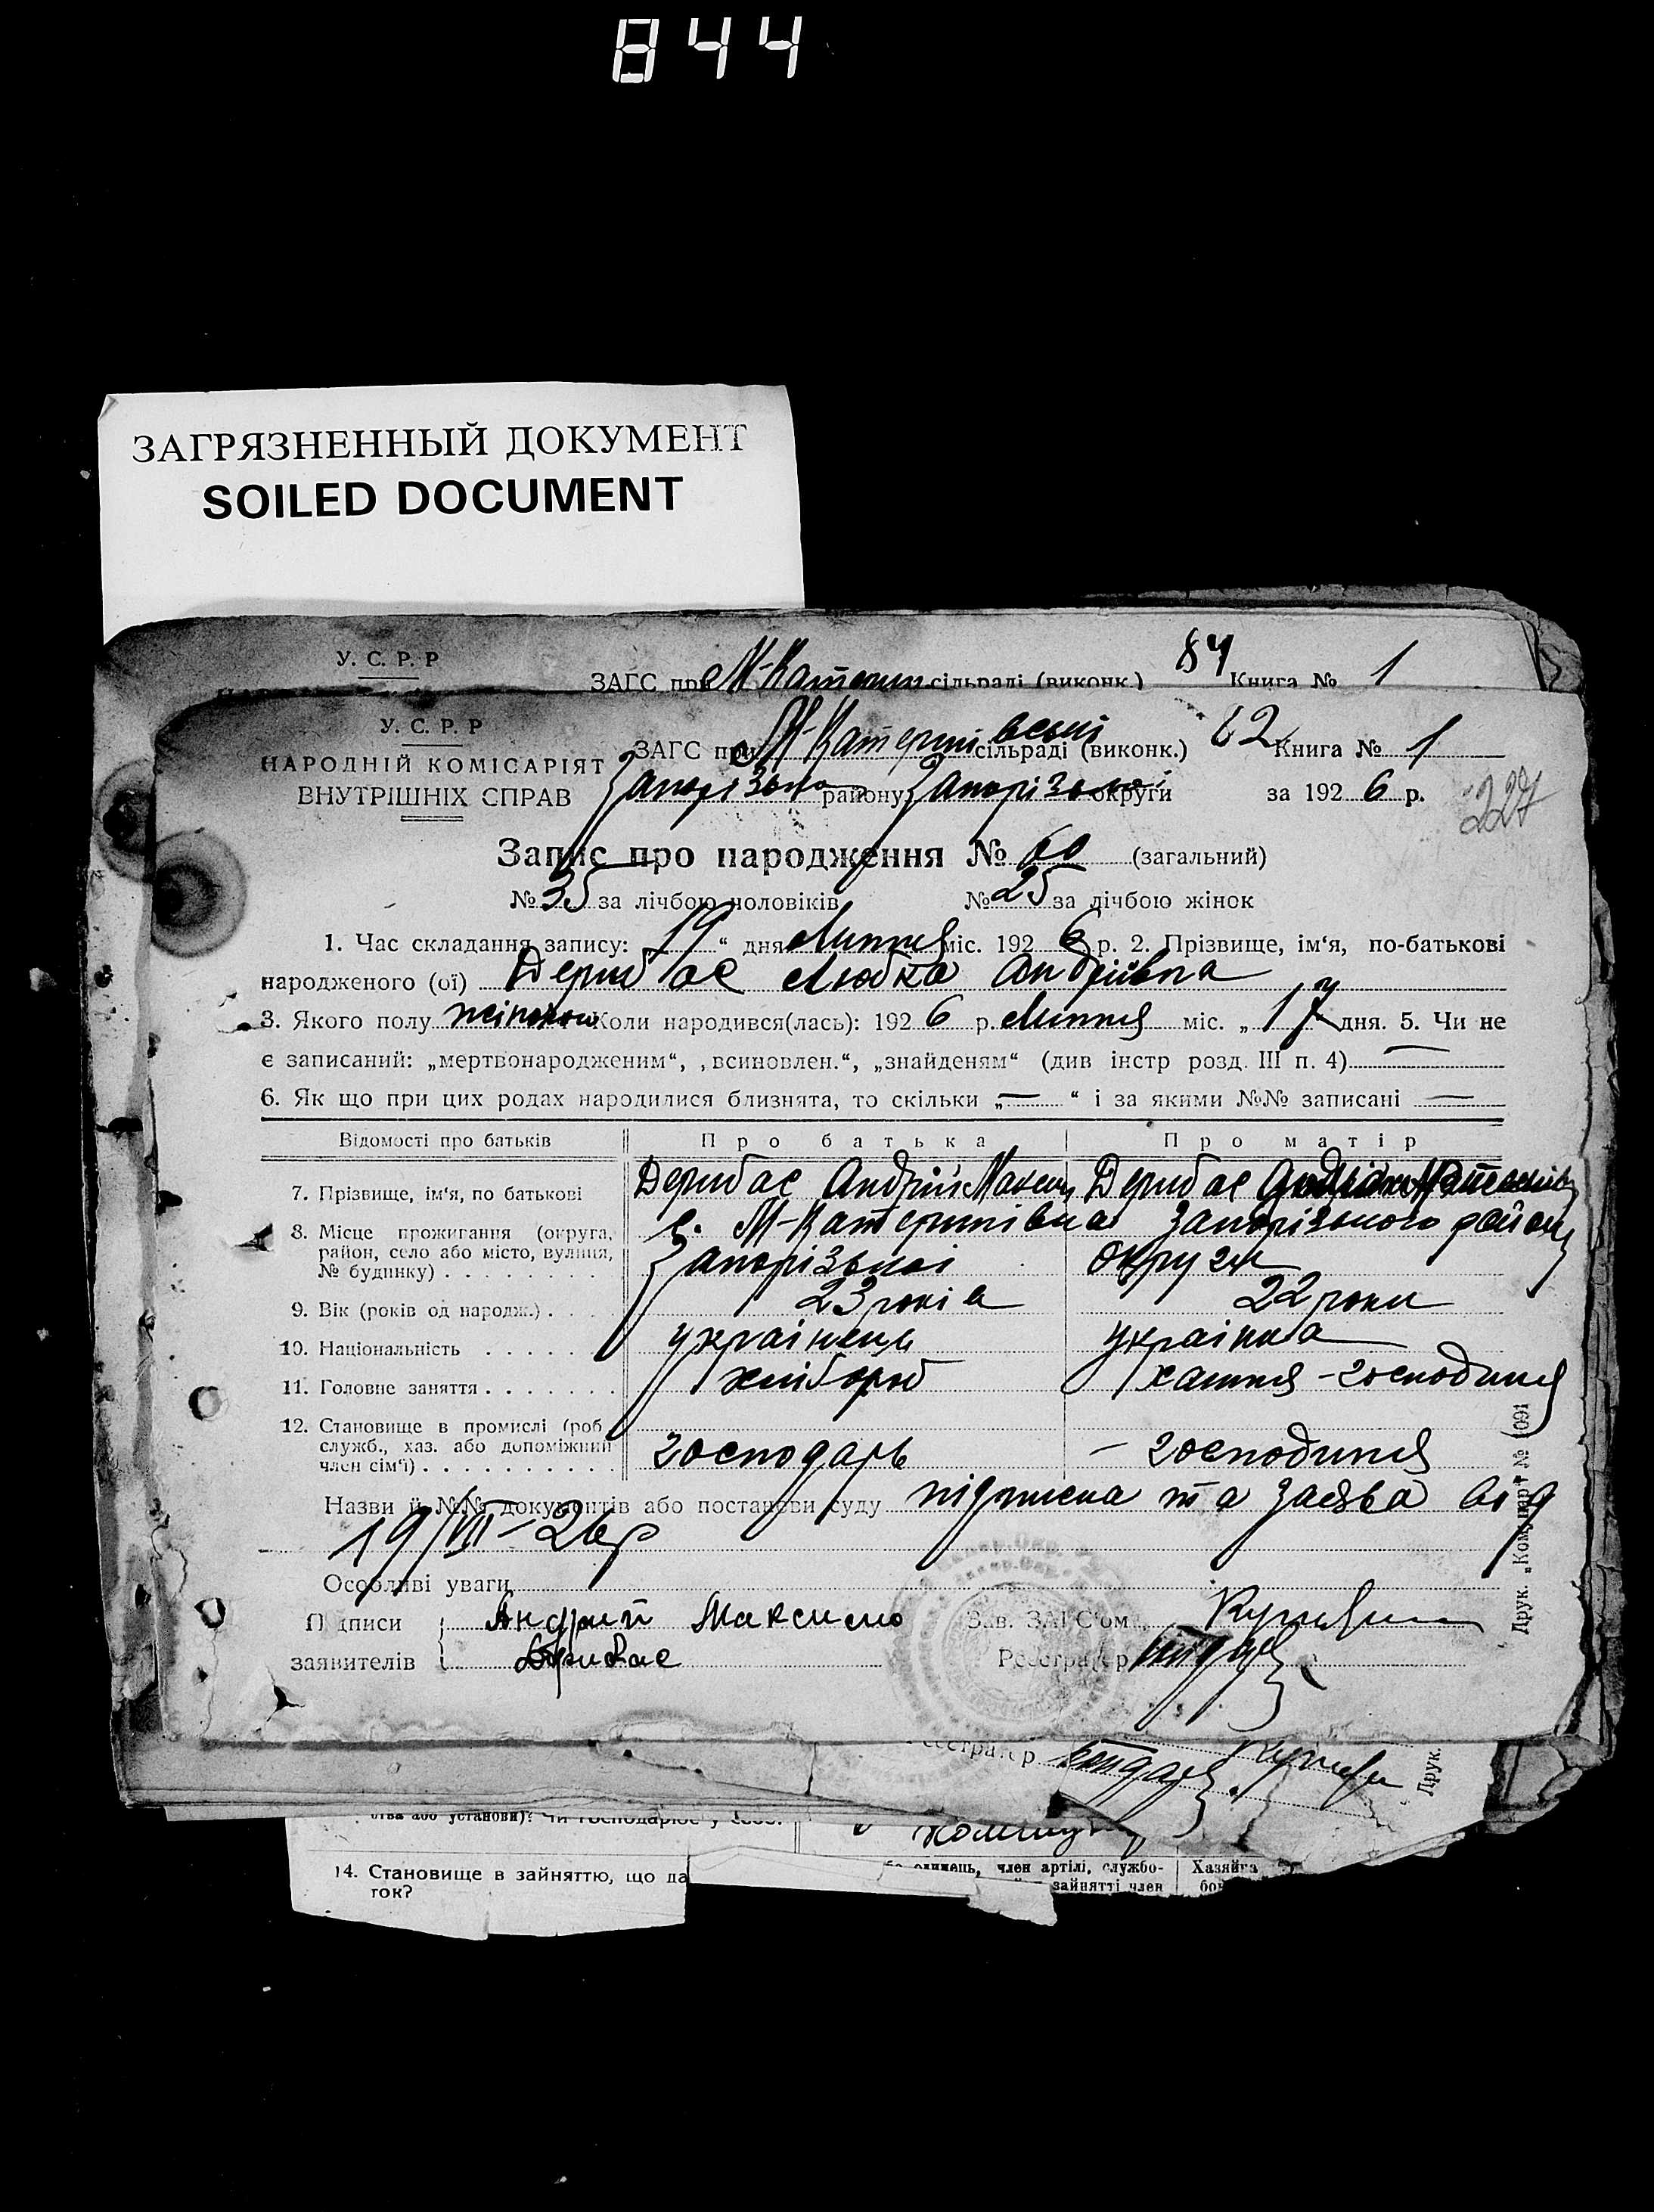 844
ЗАГРЯЗНЕННЫЙ ДОКУМЕНТ
SOILED DOCUMENT
У. С. Р. Р
ЗАГС при М-Катерин сільраді (виконк.) 84 Книга № 1
У. С. Р. Р
НАРОДНІЙ КОМІСАРІЯТ
ВНУТРІШНІХ СПРАВ
ЗАГС при М-Катеринівські сільраді (виконк.) 62 Книга № 1
Запорізько району Запорізької округи за 1926 р.
227
Запис про народження № 60 (загальний)
№ 35 за лічбою чоловіків № 25 за лічбою жінок
1. Час складання запису: 19 “ дня Липня міс. 1926 р. 2. Прізвище, ім‘я, по-батькові
народженого (ої) Дерибас Любка Андріївна
3. Якого полу жіночого Коли народився(лась): 1926 р. Липня міс. „ 17 дня. 5. Чи не
є записаний: „мертвонародженим“, „всиновлен.“, „знайденям“ (див інстр розд. III п. 4) —
6. Як що при цих родах народилися близнята, то скільки „ — “ і за якими №№ записані —
Відомості про батьків Про батька Про матір
7. Прізвище, ім‘я, по батькові Дерибас Андрій Максим Дерибас
8. Місце прожигання (округа, район, село або місто, вулиця, № будинку) с. М-Катеринівка Запорізького району
Запорізької округи
9. Вік (років од народж.) 23 років 22 роки
10. Національність українець українка
11. Головне заняття хлібороб хатня - господиня
12. Становище в промислі (роб
служб., хаз. або допоміжний
член сім‘ї) господарь – господиня
Назви й №№ документів або постанови суду підписка та заява від
19/VII – 26 р
Особливі уваги
Підписи заявителів Андрий Максимо
Дерибас
Зав. ЗАГС‘ом
Реєстратер
Друк. „Комунар“ № 1091
Реєстратер
Друк.
ства або установи)? Чи господарює у
14. Становище в зайняттю, що да
ток?
одинець, член артілі, службо-
зайнятті член
Хазяйка